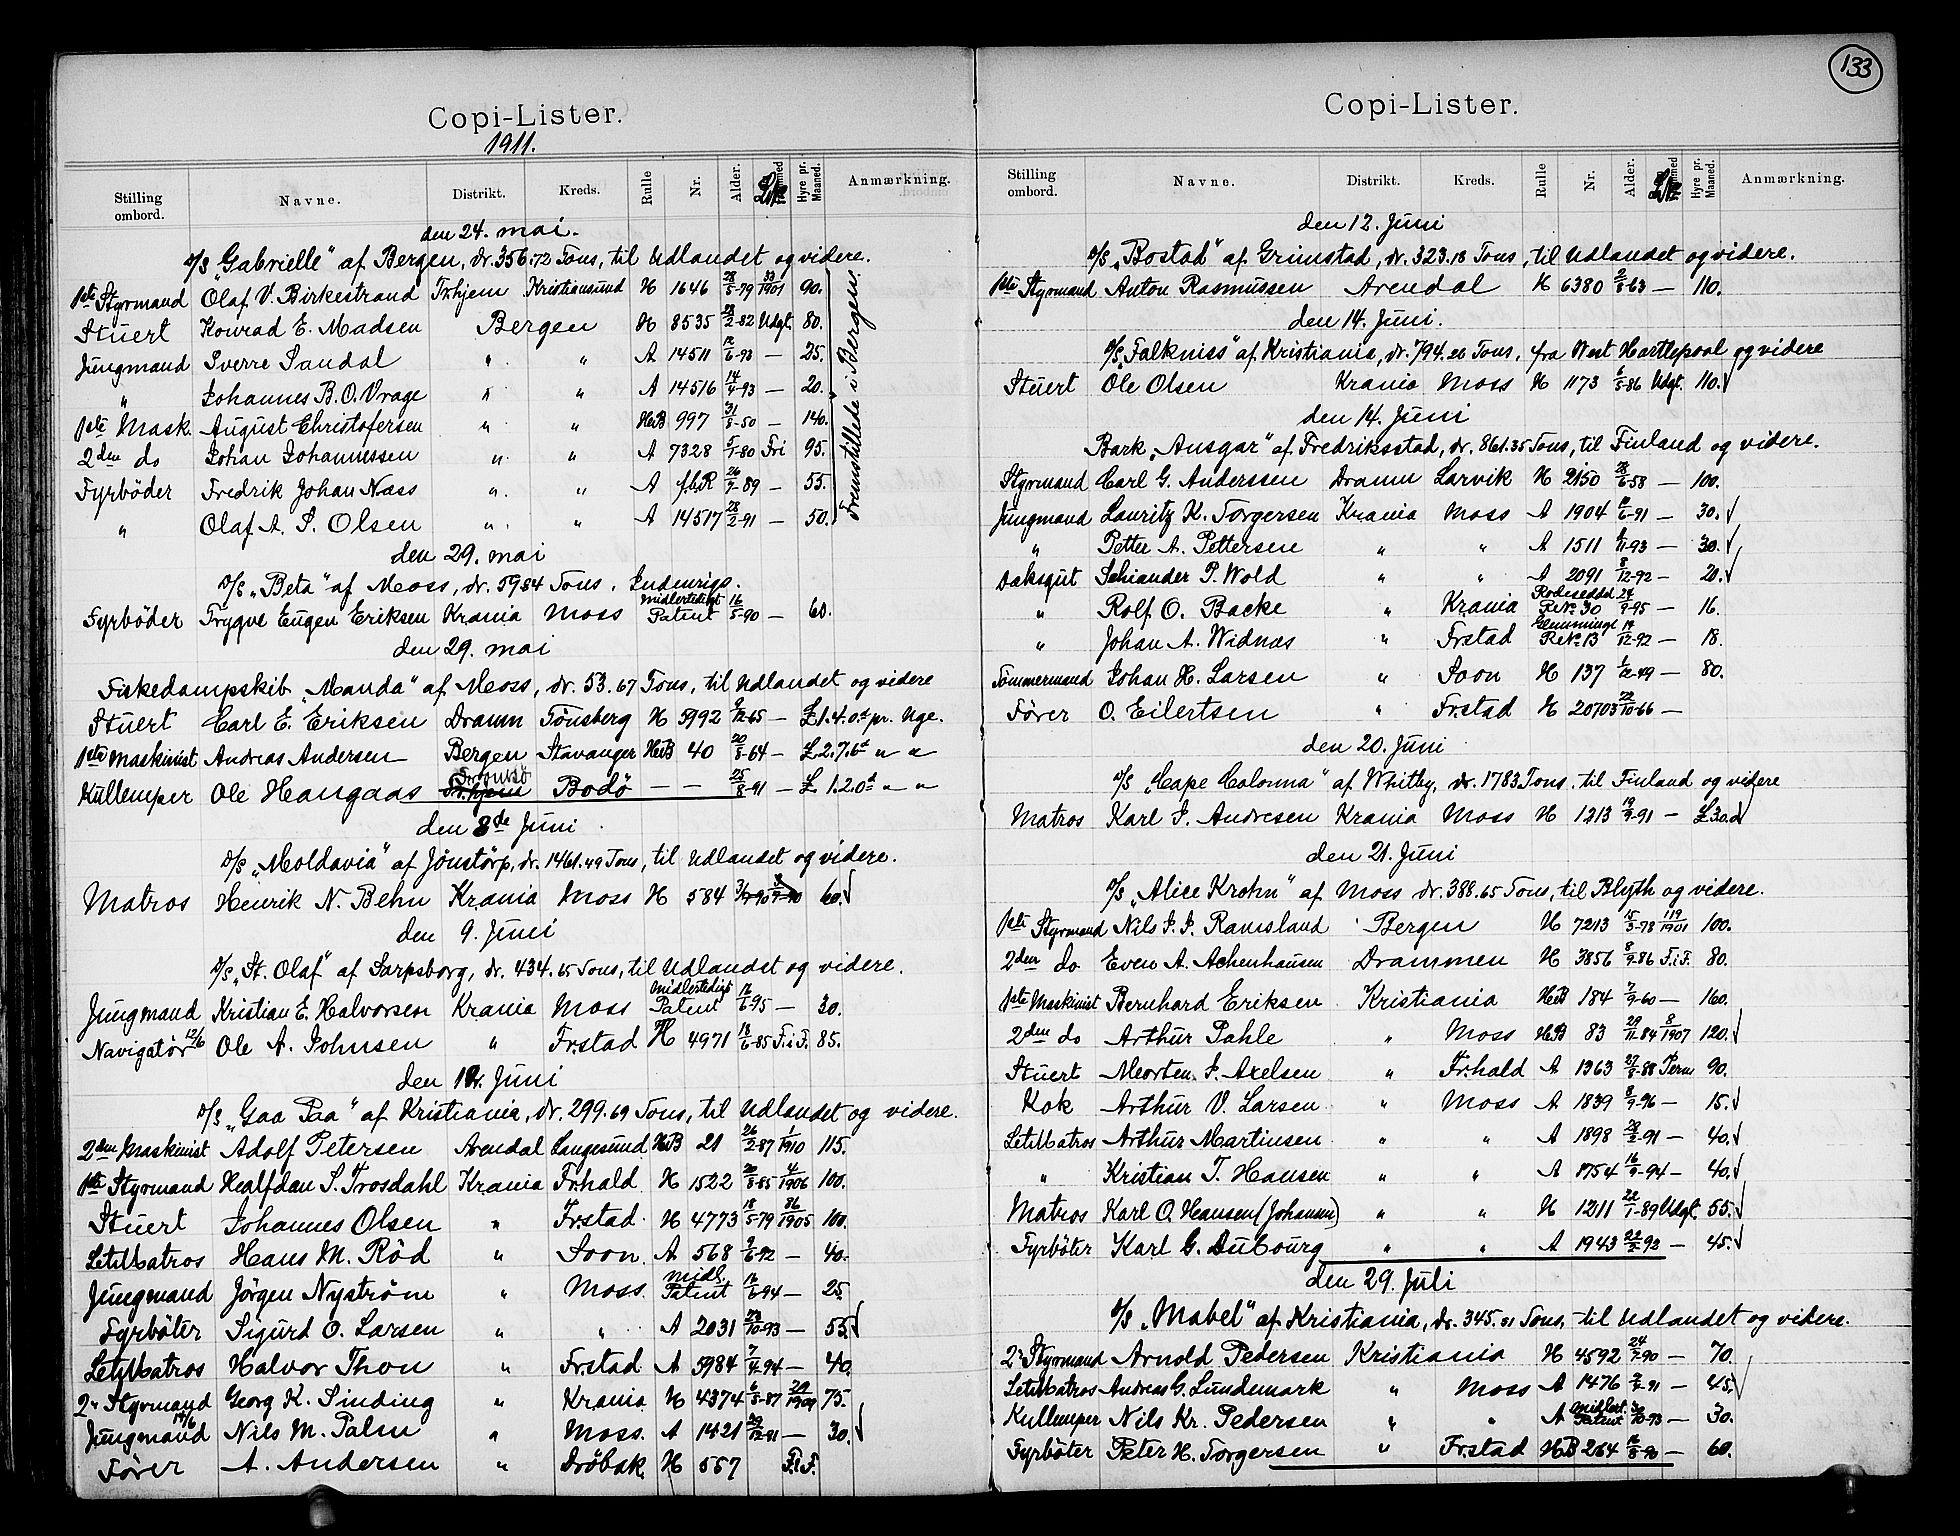 133
Copi-Lister.
1911.
Stilling ombord. Navne. Distrikt. Kreds. Rulle Nr. Alder. Hyre pr. Maaned. Anmærkning.
den 24. mai.
D/S "Gabrielle" af Bergen, dr. 356.72 Tons, til Udlandet og videre.
1ste Styrmand Olaf V. Birkestrand Tr.hjem Kristiansund H 1646 28/5-79 33/1901 90.
Stuert Konrad E. Madsen Bergen H 8535 /2-82 Udgt. 80.
Jungmand Sverre Sandal " " A 14511 12/6-93 — 25.
" Johannes B. O. Vrage " " A 14516 14/4-93 — 20.
1ste Mask. August Christofersen " " HaB 997 31/8-50 — 140.
2den do Johan Johannessen " " A 7328 5/1-80 Fri 95.
Fyrböder Fredrik Johan Næss " " A f.b.R 26/9-89 — 55.
" Olaf A. S. Olsen " " A 14517 23/2-91 — 50.
Fremstillede i Bergen.
den 29. mai
D/S "Beta" af Moss, dr. 59.84 Tons, Indenrigs.
Fyrböder Trygve Eugen Eriksen Krania Moss Midlertidigt Patent 16/5-90 — 60.
den 29. mai
Fiskedampskib "Manda" af Moss, dr. 53.67 Tons, til Udlandet og videre
Stuert Carl E. Eriksen Dramn Tønsberg H 5992 9/12-65 — £ 1.4.0d pr. Uge.
1ste Maskinist Andreas Andersen Bergen Stavanger HaB 40 20/8-64 — £ 2.7.6d " "
Kullemper Ole Hangaas Tromsö Tr.hjem Bodö — — 25/8-91 — £ 1.2.0d " "
den 8de Juni
D/S "Moldavia" af Jönstörp, dr. 1461.49 Tons, til Udlandet og videre.
Matros Henrik N. Behn Krania Moss H 584 60.
den 9. Juni
D/S "St. Olaf" af Sarpsborg, dr. 434.65 Tons, til Udlandet og videre.
Jungmand Kristian E. Halvorsen Krania Moss Midlertidigt Patent 12/6-95 — 30.
Navigatör 12/6 Ole A. Johnsen " Fr.stad H 4971 13/6-85 F.i.F. 85.
den 12. Juni
D/S "Gaa Paa" af Kristiania, dr. 299.69 Tons, til Udlandet og videre.
2den Maskinist Adolf Petersen Arendal Langesund HaB 21 26/2-87 1/1910 115.
1ste Styrmand Healfdan S. Trosdahl Krania Fr.hald H 1522 20/8-85 4/1906 100.
Stuert Johannes Olsen " Fr.stad H 4773 18/5-79 86/1905 100.
LetMatros Hans M. Röd " Soon A 568 9/6-92 — 40.
Jungmand Jörgen Nyström " Moss Midl. Patent 12/6-94 — 25.
Fyrböter Sigurd O. Larsen " " A 2031 23/10-93 — 55.
LetMatros Halvor Thon " Fr.stad A 5984 7/4-94 — 40.
2. Styrmand Georg K. Sinding " Krania H 4374 6/8-87 29/1909 75.
Jungmand 14/6 Nils M. Palm " Moss A 1421 29/12-91 — 30.
Förer A. Andersen " Dröbak H 557 F.i.F.
Copi-Lister.
Stilling ombord. Navne. Distrikt. Kreds. Rulle Nr. Alder. Hyre pr. Maaned. Anmærkning.
den 12. Juni
D/S "Bostad" af Grimstad, dr. 323.18 Tons, til Udlandet og videre.
1ste Styrmand Anton Rasmussen Arendal H 6380 2/8-63 — 110.
den 14. Juni.
D/S "Falkniss" af Kristiania, dr. 794.26 Tons, fra West Hartlepool og videre
Stuert Ole Olsen Krania Moss H 1173 6/5-86 Udgt. 110.
den 14. Juni
Bark "Ansgar" af Fredriksstad, dr. 861.35 Tons, til Finland og videre.
Styrmand Carl G. Anderssen Dramn Larvik H 2150 28/6-58 — 100.
Jungmand Lauritz K. Torgersen Krania Moss A 1904 /6-91 — 30.
" Petter A. Pettersen " " A 1511 /11-93 — 30.
Daksgut Schiander P. Wold " " A 2091 8/12-92 — 20.
" Rolf O. Backe " Krania Rodeseddel R.No. 30 24/9-95 — 16.
" Johan A. Widnæs " Fr.stad Glemminge R.No. 13 19/12-92 — 18.
Tömmermand Johan H. Larsen " Soon H 137 1/12-49 — 80.
Förer O. Eilertsen " Fr.stad H 20703 22/10-66 —
den 20. Juni
D/S "Cape Colonna" af Whitby, dr. 1783 Tons, til Finland og videre
Matros Karl J. Andresen Krania Moss H 1213 19/9-91 — £3.0.d
den 21. Juni
D/S "Alice Krohn" af Moss dr. 388.65 Tons, til Blyth og videre.
1ste Styrmand Nils J. J. Ramsland Bergen H 7213 15/3-78 119/1901 100.
2den do Even A. Achenhausen Drammen H 3856 8/9-86 F.i.F. 80.
1ste Maskinist Bernhard Eriksen Kristiania HaB 184 7/9-60 — 160.
2den do Arthur Pahle " Moss HaB 83 29/11-84 8/1907 120.
Stuert Morten J. Axelsen " Fr.hald A 1363 27/8-88 Perm 90.
Kok Arthur V. Larsen " Moss A 1839 8/9-96 — 15.
LetMatros Arthur Martinsen " " A 1898 28/2-91 — 40.
" Kristian T. Hansen " " A 1754 16/9-94 — 40.
Matros Karl O. Hansen (Johansen) " " H 1211 22/1-89 Udgt. 55.
Fyrböter Karl G. Dubourg " " A 1943 22/2-92 — 45.
den 29. Juli
D/S "Mabel" af Kristiania, dr. 345.81 Tons, til Udlandet og videre.
2. Styrmand Arnold Pedersen Kristiania H 4592 24/7-90 — 70.
LetMatros Andreas G. Lundemark " Moss A 1476 2/4-91 — 45.
Kullemper Nils Kr. Pedersen " " A Midlert. Patent 30/10-93 — 30.
Fyrböter Peter H. Torgersen " Fr.stad HB 264 16/8-90 — 60.